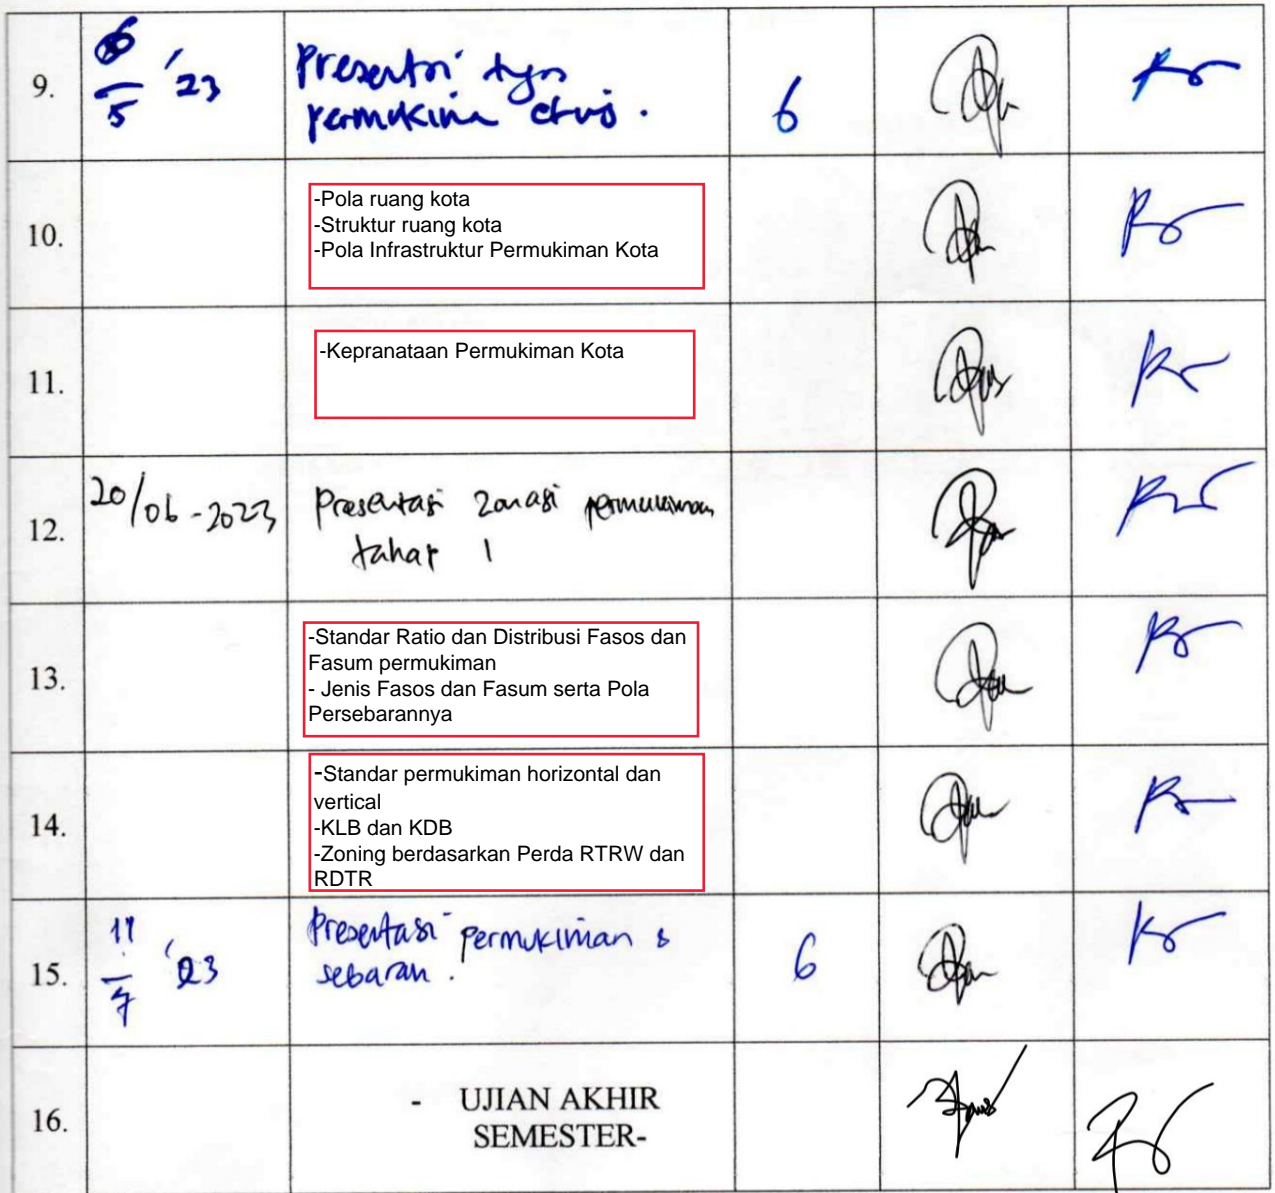 9.
5 '23
Presentasi tugas
permukiman etnis.
6
10.
-Pola ruang kota
-Struktur ruang kota
-Pola Infrastruktur Permukiman Kota
11.
-Kepranataan Permukiman Kota
12.
20/06-2023
Presentasi zonasi permukiman
tahap 1
13.
-Standar Ratio dan Distribusi Fasos dan
Fasum permukiman
- Jenis Fasos dan Fasum serta Pola
Persebarannya
14.
-Standar permukiman horizontal dan
vertical
-KLB dan KDB
-Zoning berdasarkan Perda RTRW dan
RDTR
15.
7 '23
Presentasi permukiman &
sebaran.
6
16.
- UJIAN AKHIR
SEMESTER-